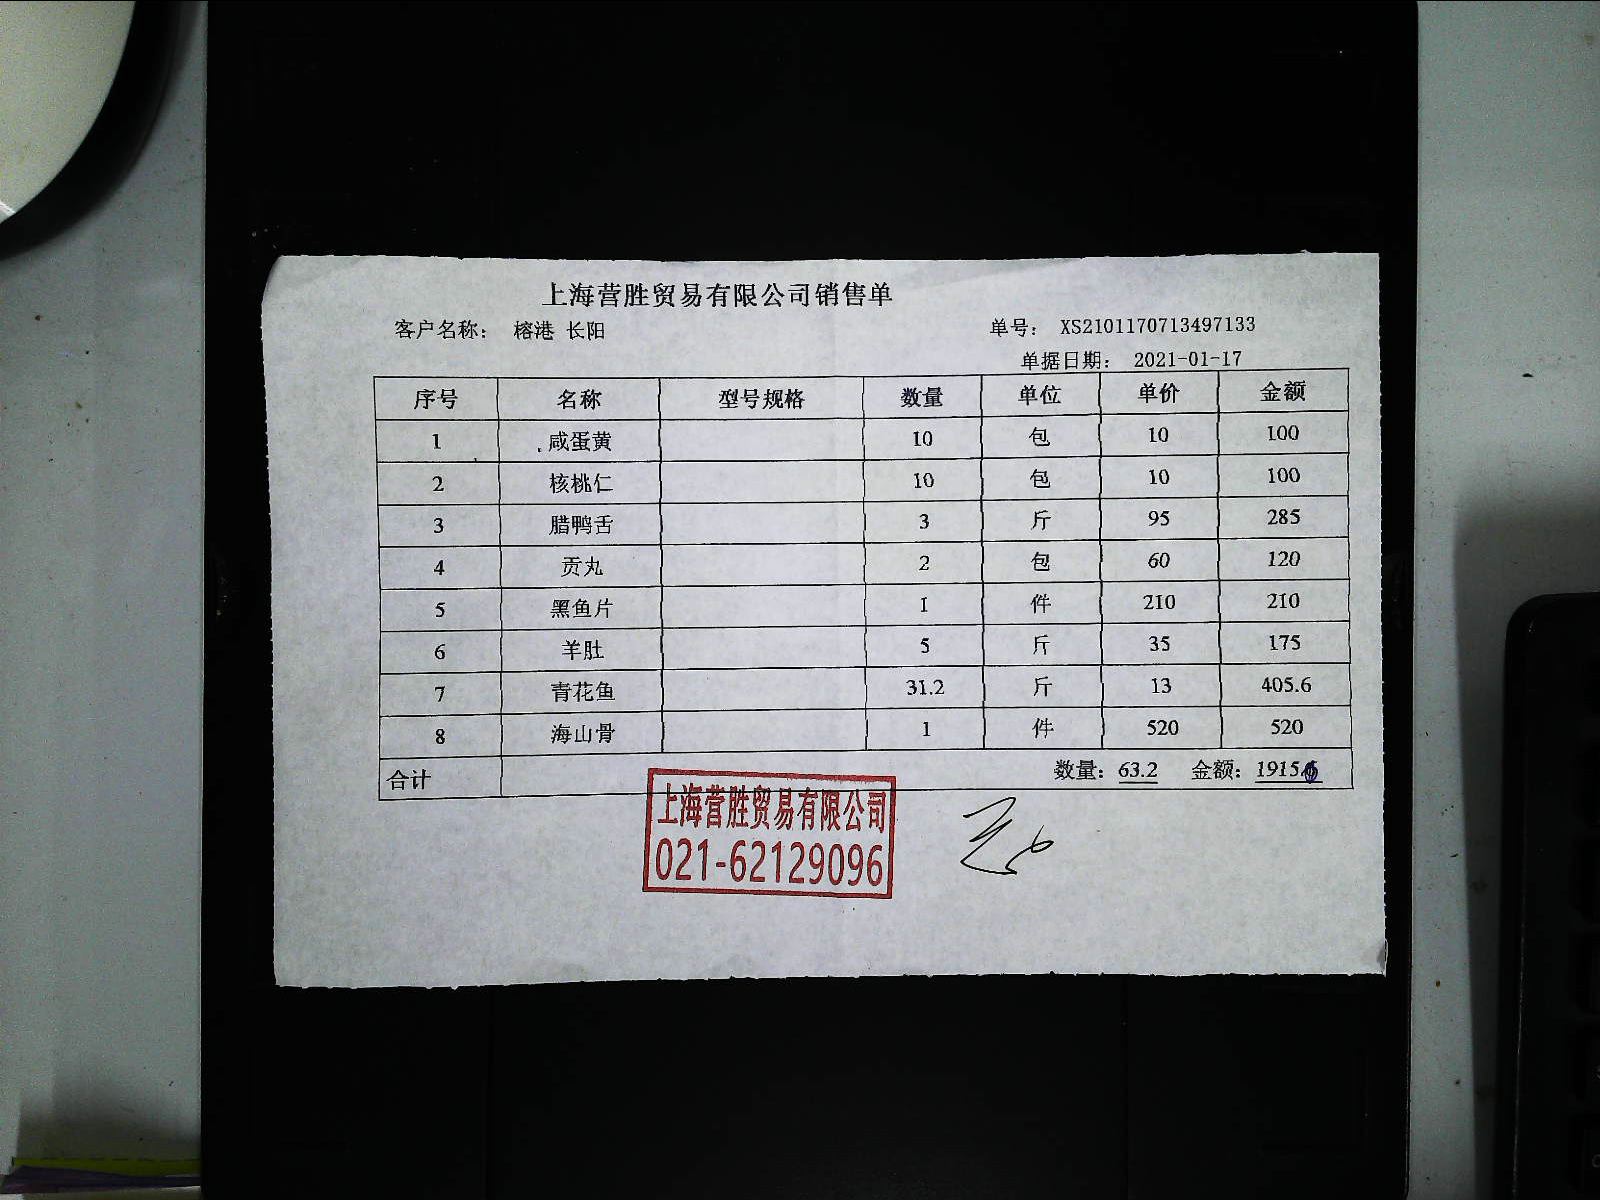 上海营胜贸易有限公司销售单
客户名称： 榕港 长阳 单号： XS2101170713497133
单据日期： 2021-01-17
序号 名称 型号规格 数量 单位 单价 金额
1 咸蛋黄 10 包 10 100
2 核桃仁 10 包 10 100
3 腊鸭舌 3 斤 95 285
4 贡丸 2 包 60 120
5 黑鱼片 1 件 210 210
6 羊肚 5 斤 35 175
7 青花鱼 31.2 斤 13 405.6
8 海山骨 1 件 520 520
合计 数量：63.2 金额：1915.6
上海营胜贸易有限公司
021-62129096